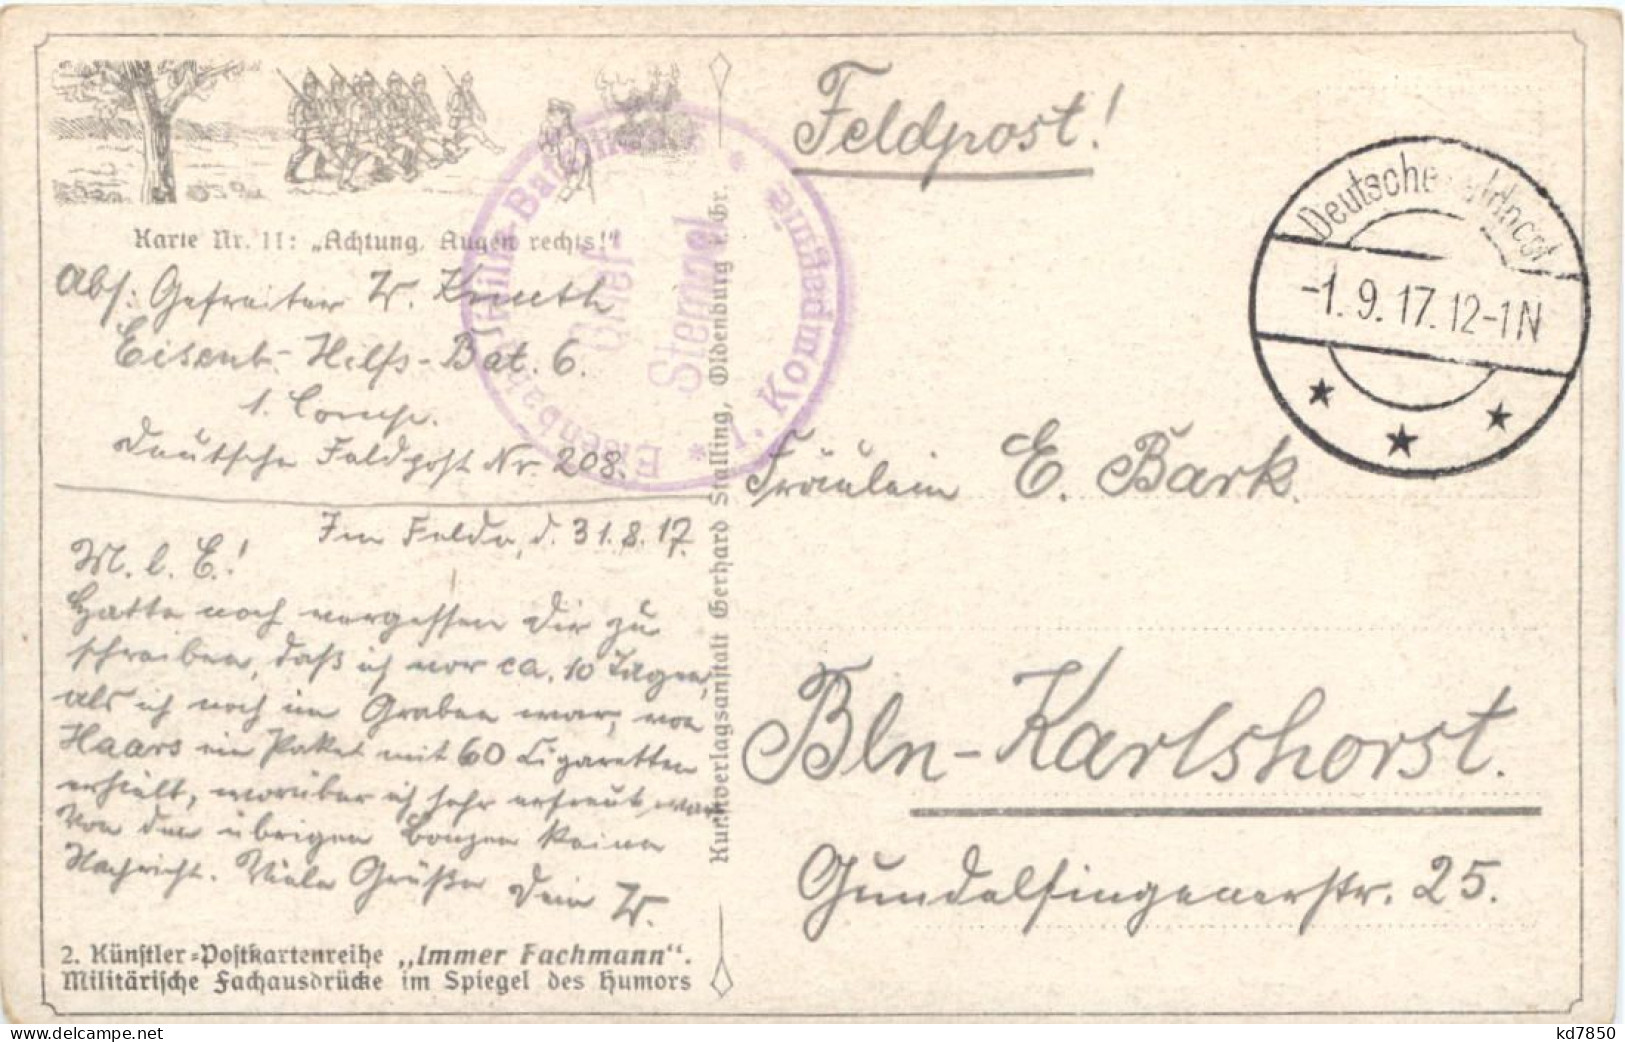 Karte Nr. 11: „Achtung, Augen rechts!“
Abs: Gefreiter W.
Eisenb.-Hilfs-Bat. 6.
1. Comp.
Deutsche Feldpost Nr. 208.
Im Felde, d. 31.8.17.
M. l. E.!
Hatte noch vergessen Dir zu
schreiben, daß ich vor ca. 10 Tagen,
als ich noch im Graben war, von
Haars ein Paket mit 60 Zigaretten
erhielt, worüber ich sehr erfreut war
Von den übrigen Bonzen keine
Nachricht. Viele Grüße Dein W.
2. Künstler-Postkartenreihe „Immer Fachmann“.
Militärische Fachausdrücke im Spiegel des Humors
Kunstverlagsanstalt Gerhard Stalling, Oldenburg i. Gr.
Eisenbahn-Hilfs-Bataillon
* 1. Kompagnie *
Brief
Stempel
Feldpost!
Deutsche Feldpost
-1.9.17. 12-1N
Fräulein E. Bark.
Bln-Karlshorst.
Gundelfingenerstr. 25.
kd7850